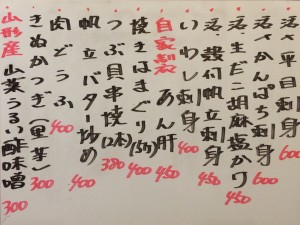 活〆平目刺身 600
活〆かんぱち刺身 600
活生だこ胡麻塩かけ 450
活殻付帆立刺身 450
いわし刺身 400
自家製 あん肝 450
焼きはまぐり(5ケ) 400
つぶ貝串焼(2本) 380
帆立バター炒め 400
肉どうふ 400
きぬかつぎ(里芋) 300
山形産 山菜うるい酢味噌 300